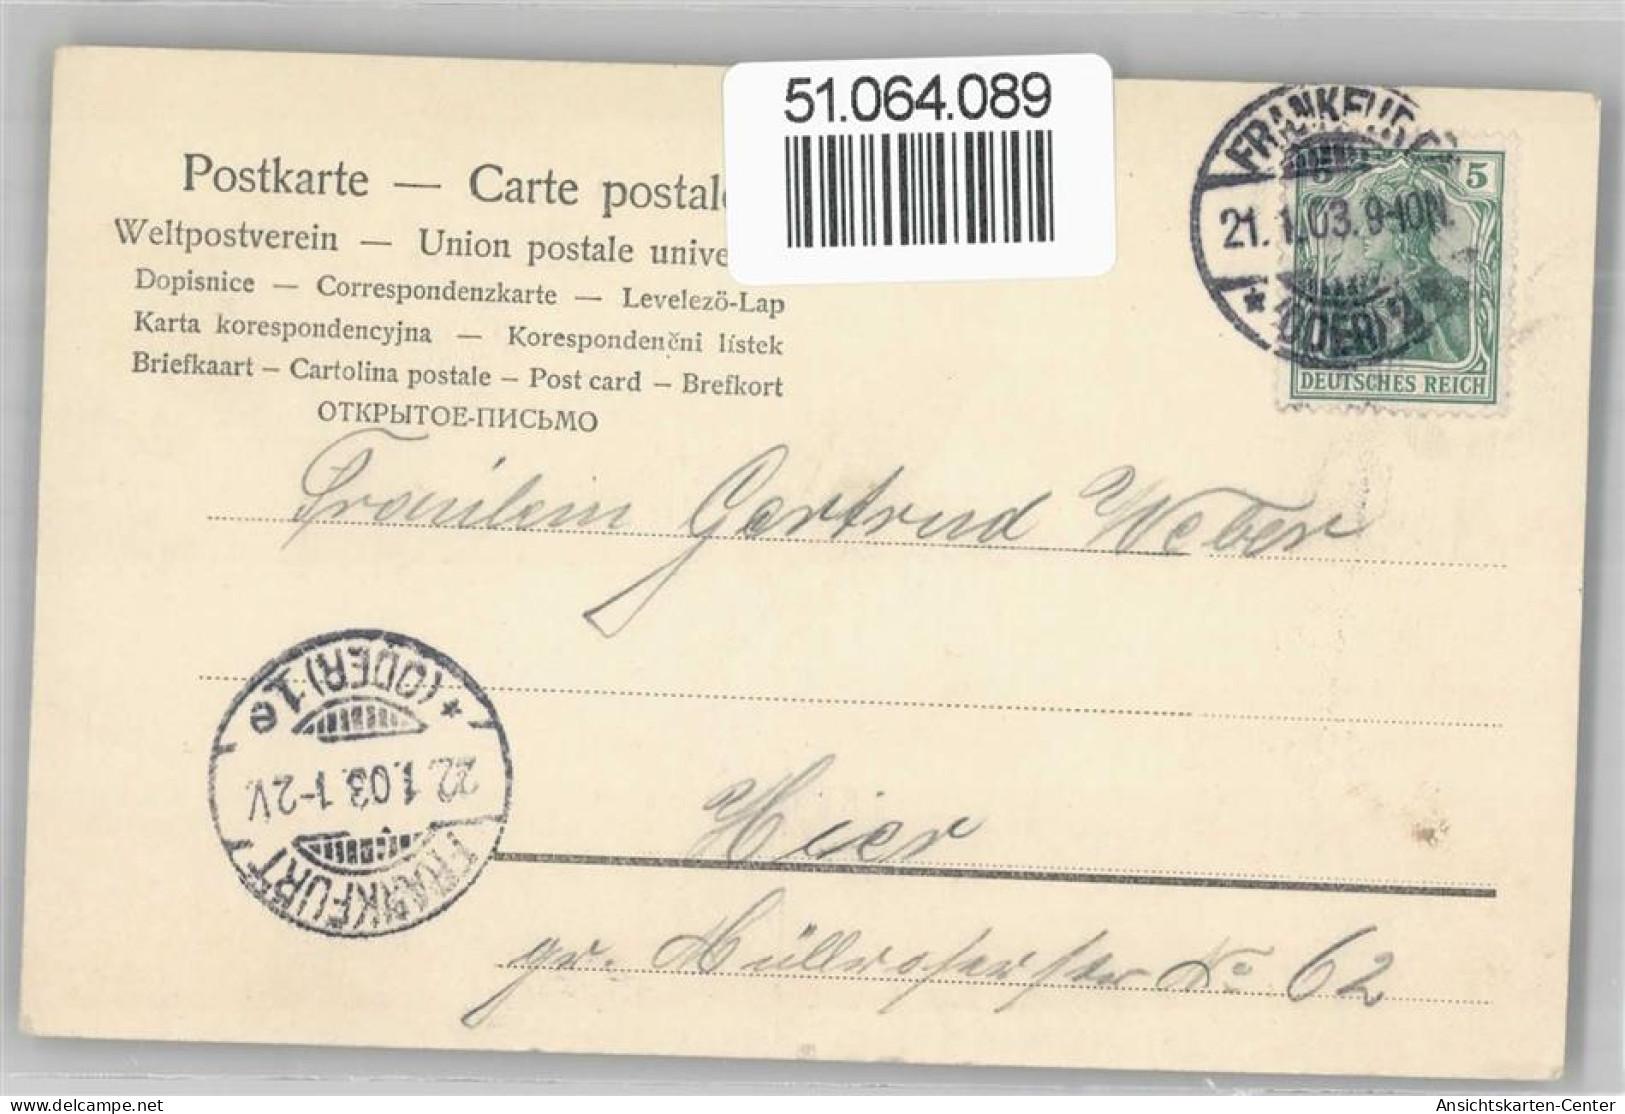 51.064.089
Postkarte — Carte postale
Weltpostverein — Union postale unive
Dopisnice — Correspondenzkarte — Levelezö-Lap
Karta korespondencyjna — Korespondenčni lístek
Briefkaart — Cartolina postale — Post card — Brefkort
ОТКРЫТОЕ-ПИСЬМО
FRANKFURT
21.1.03.9-10N.
* (ODER) 2 *
5 5
DEUTSCHES REICH
Fräulein Gertrud Weber
Hier
gr. Müllroserstr No 62
FRANKFURT
22.1.03.1-2V.
* (ODER) 1 e
Ansichtskarten-Center